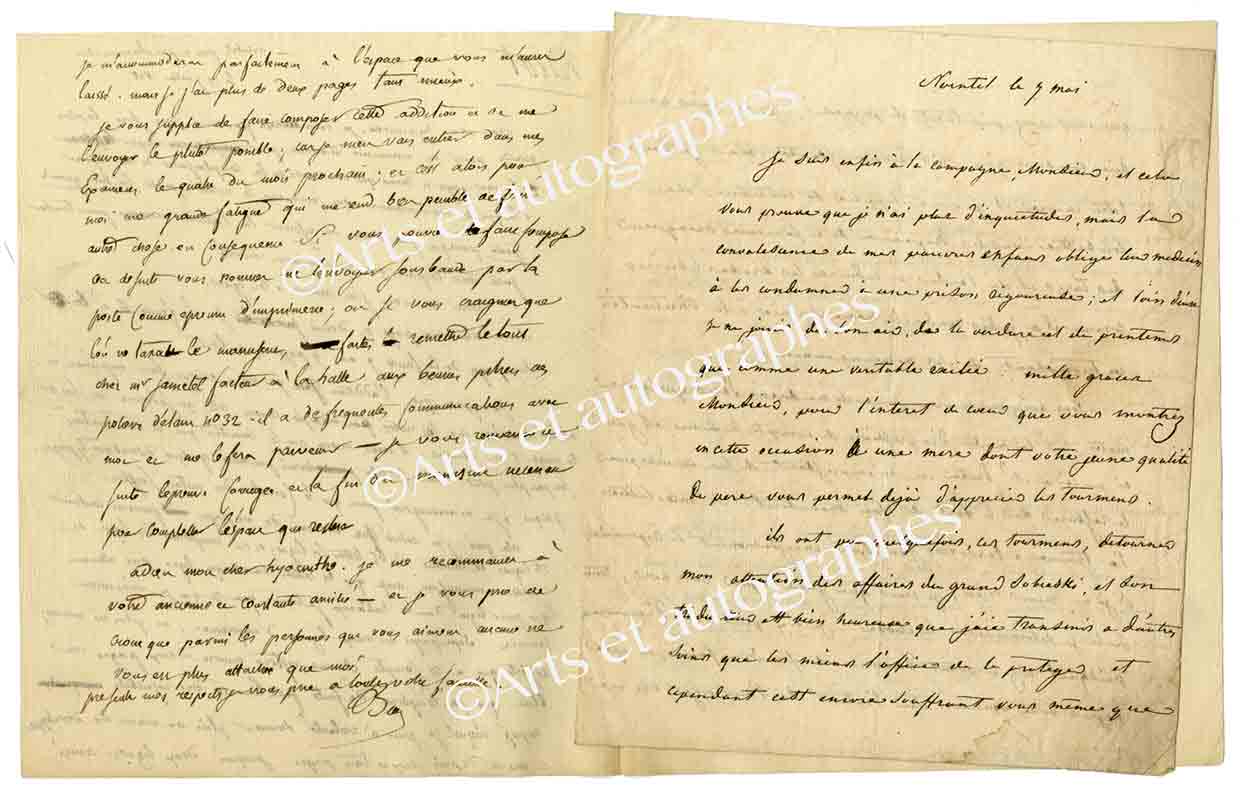 je m'accommoderai parfaitement à l'espace que vous m'aurez
laissé. mais je j'ai plus de deux pages tant mieux.
je vous supplie de faire composer cette addition et de me
l'envoyer le plutot possible; car je m'en vais entrer dans mes
Examens le quatre du mois prochain; et c'est alors pour
moi une grande fatigue qui me rend bien penible de faire
autre chose en consequence si vous pouvez faire composer
de suite vous pourriez me l'envoyer sous bande par la
poste comme epreuve d'imprimerie; ou si vous craignez que
l'on ne taxat le manuscrit, faites remettre le tout
chez mr jametel facteur à la halle aux beurres piliers des
potiers d'étain no 32 - il a de frequentes communications avec
moi et me le fera parvenir — je vous renverrai de
suite l'epreuve corrigée et la fin du manuscrit necessaire
pour completter l'espace qui restera
adieu mon cher hyacinthe. je me recommande à
votre ancienne et constante amitié — et je vous prie de
croire que parmi les personnes qui vous aiment aucune ne
vous est plus attaché que moi
presente mes respects je vous prie a toute votre famille
Nointel le 7 mai
Je suis enfin à la campagne, Monsieur, et cela
vous prouve que je n'ai plus d'inquietudes, mais la
convalescence de mes pauvres enfans oblige leur medecin
à les condamner à une prison rigoureuse; et loin d'eux
je ne jouis du bon air, de la verdure et du printems
que comme une veritable exilée: mille graces
Monsieur, pour l'interet de coeur que vous montrez
en cette occasion à une mere dont votre jeune qualité
de pere vous permet dejà d'apprecier les tourmens.
ils ont pu quelquefois, ces tourmens, detourner
mon attention des affaires du grand Sobieski, et son
est bien heureuse que j'aie transmis a d'autres
soins que les miens l'office de la proteger et
cependant c'est encore souffrant vous même que
©Arts et autographes
©Arts et autographes
©Arts et autographes